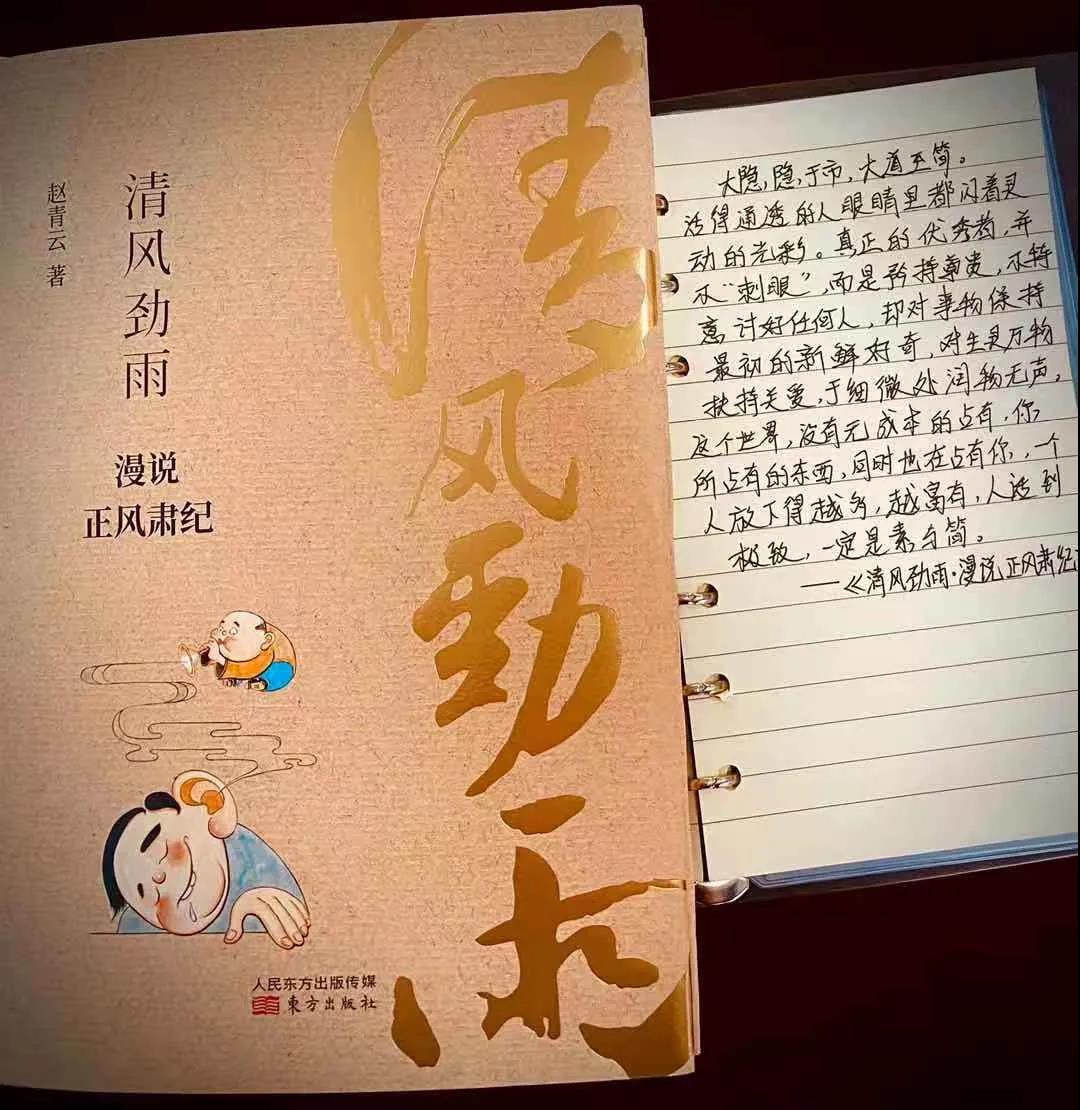 清风劲雨
清风劲雨
赵青云 著
漫说
正风肃纪
人民东方出版传媒
东方出版社
大隐,隐于市,大道至简。
活得通透的人眼睛里都闪着灵
动的光彩。真正的优秀者,并
不“刺眼”,而是矜持尊贵,不特
意讨好任何人,却对事物保持
最初的新鲜好奇,对生灵万物
扶持关爱,于细微处润物无声。
这个世界,没有无成本的占有,你
所占有的东西,同时也在占有你,一个
人放下得越多,越富有,人活到
极致,一定是素与简。
——《清风劲雨·漫说正风肃纪》